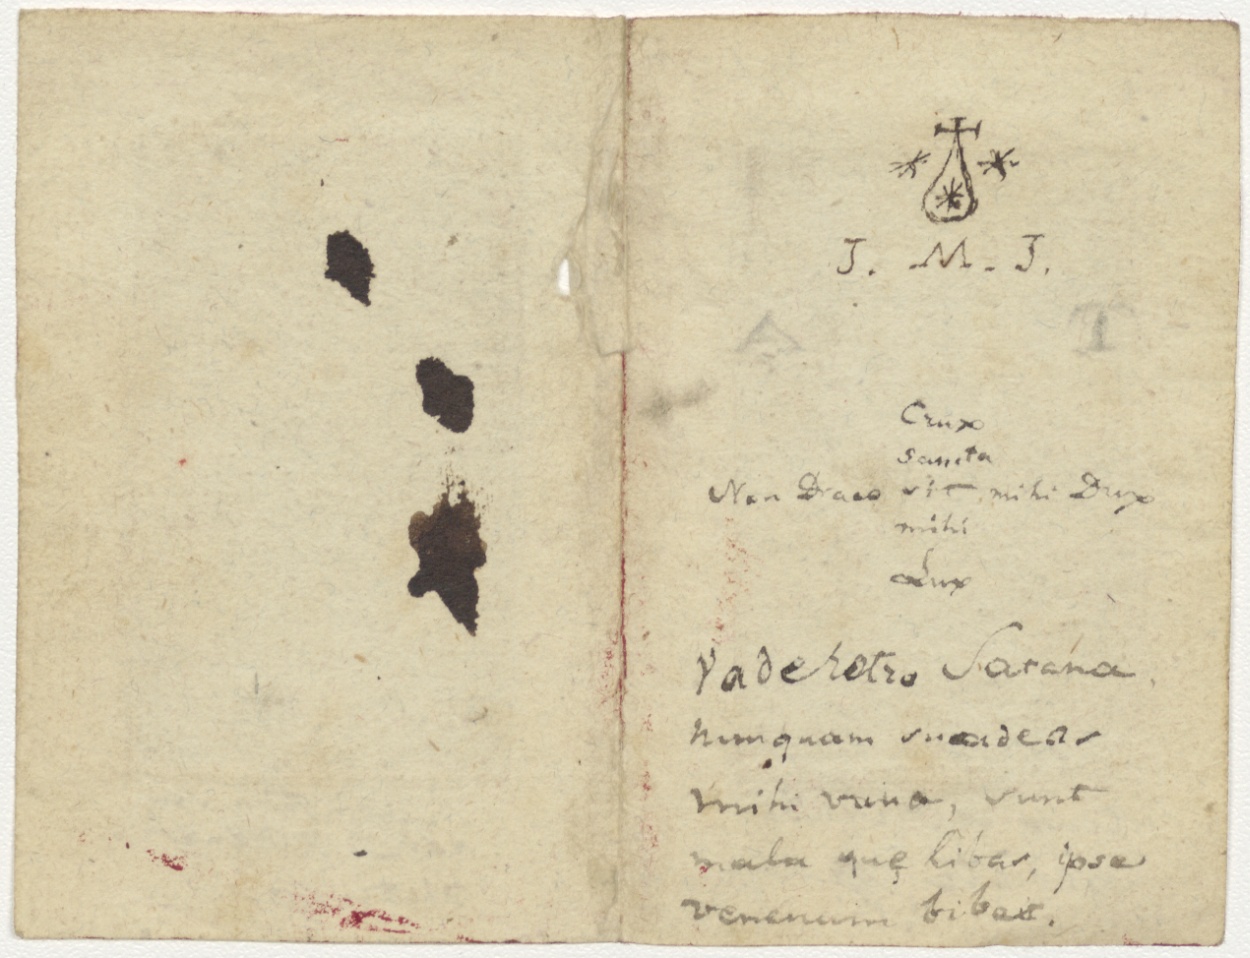 J. M. J.
A T
Crux
sancta
Non Draco sit mihi Dux
mihi
Lux
Vade Retro Satana.
Nunquam suadeas
mihi vana, sunt
mala quę libas, ipse
venenum bibas.